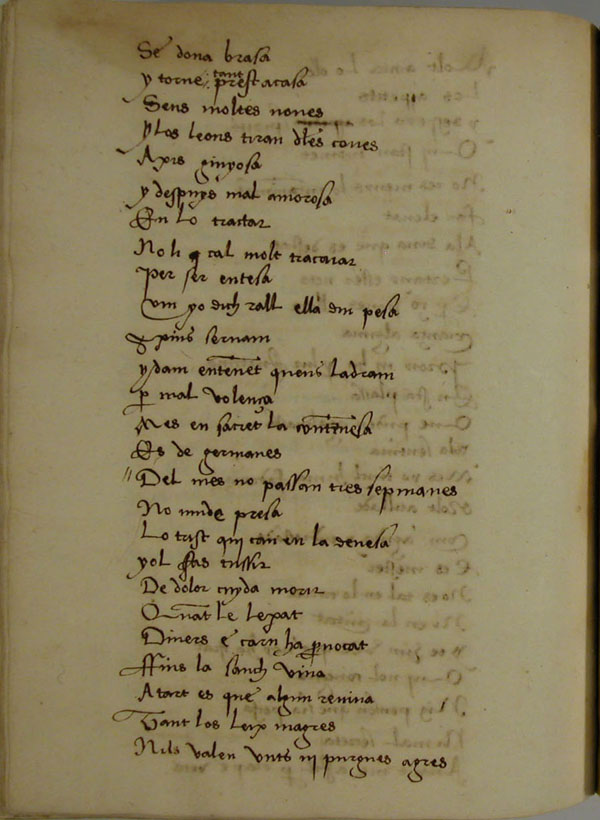 Se dona brasa
y torne tant prest acasa
Sens moltes noves
y los leons tiran dles coves
Axis ginyosa
y despuys mal amorosa
En lo tractar
No li cal molt tracatar
Per ser entesa
Um yo dich rall ella diu pesa
servam
ydam entenēt quens ladram
p mal volença
Mes en sacret la
Es de germanes
Del mes no passan tres sepmanes
No mude presa
Lo trist qui cau en la devesa
yol fas tussir
De dolor cuyda morir
Quāt le lexat
Diners e carn ha pvocat
ffins la sanch viva
Atart es que algun reviva
Tant los leix magres
Nils valen unts ni purgues agres